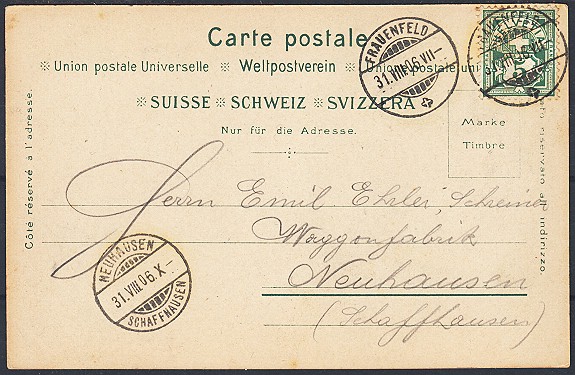 Carte postale
※ Union postale Universelle ※ Weltpostverein ※ Unione postale uni
※ SUISSE ※ SCHWEIZ ※ SVIZZERA
Nur für die Adresse.
Côté réservé à l'adresse.
FRAUENFELD
31.VIII.06.VII–
31.VIII.06.VII
Marke
Timbre
riservato all'indirizzo.
Herrn Emil Ehrlei, Schreiner
Waggonfabrik
Neuhausen
(Schaffhausen)
NEUHAUSEN
31.VIII.06.X–
SCHAFFHAUSEN